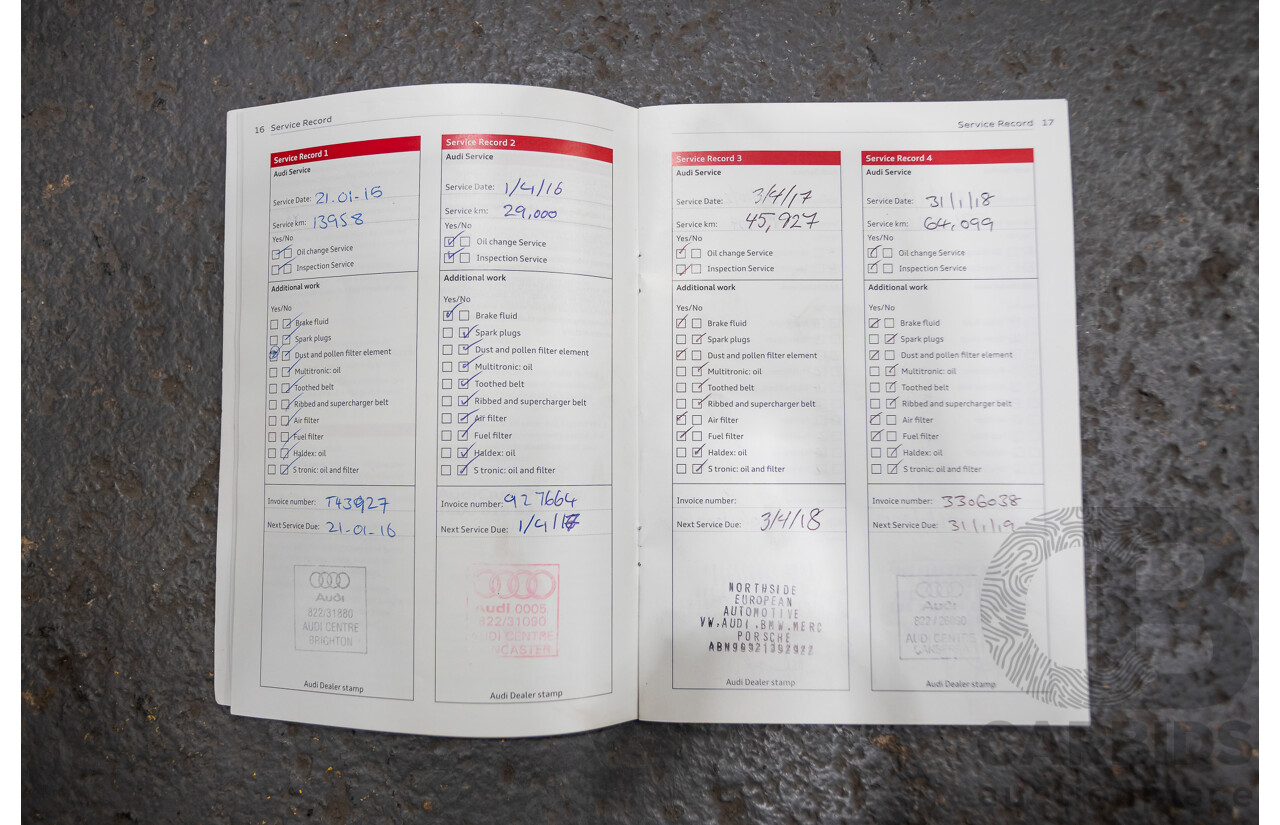 16 Service Record
Service Record 1
Audi Service
Service Date: 21.01-15
Service km: 13958
Yes/No
Oil change Service
Inspection Service
Additional work
Yes/No
Brake fluid
Spark plugs
Dust and pollen filter element
Multitronic: oil
Toothed belt
Ribbed and supercharger belt
Air filter
Fuel filter
Haldex: oil
S tronic: oil and filter
Invoice number: T43927
Next Service Due: 21-01-16
Audi
822/31880
AUDI CENTRE
BRIGHTON
Audi Dealer stamp
Service Record 2
Audi Service
Service Date: 1/4/16
Service km: 29,000
Yes/No
Oil change Service
Inspection Service
Additional work
Yes/No
Brake fluid
Spark plugs
Dust and pollen filter element
Multitronic: oil
Toothed belt
Ribbed and supercharger belt
Air filter
Fuel filter
Haldex: oil
S tronic: oil and filter
Invoice number: 927664
Next Service Due: 1/4/17
Audi 0005
822/31090
AUDI CENTRE
Audi Dealer stamp
Service Record 17
Service Record 3
Audi Service
Service Date: 3/4/17
Service km: 45,927
Yes/No
Oil change Service
Inspection Service
Additional work
Yes/No
Brake fluid
Spark plugs
Dust and pollen filter element
Multitronic: oil
Toothed belt
Ribbed and supercharger belt
Air filter
Fuel filter
Haldex: oil
S tronic: oil and filter
Invoice number:
Next Service Due: 3/4/18
NORTHSIDE
EUROPEAN
AUTOMOTIVE
VW.AUDI.BMW.MERC
PORSCHE
Audi Dealer stamp
Service Record 4
Audi Service
Service Date: 31/1/18
Service km: 64,099
Yes/No
Oil change Service
Inspection Service
Additional work
Yes/No
Brake fluid
Spark plugs
Dust and pollen filter element
Multitronic: oil
Toothed belt
Ribbed and supercharger belt
Air filter
Fuel filter
Haldex: oil
S tronic: oil and filter
Invoice number: 3306038
Next Service Due: 31/1/19
Audi
AUDI CENTRE
Audi Dealer stamp